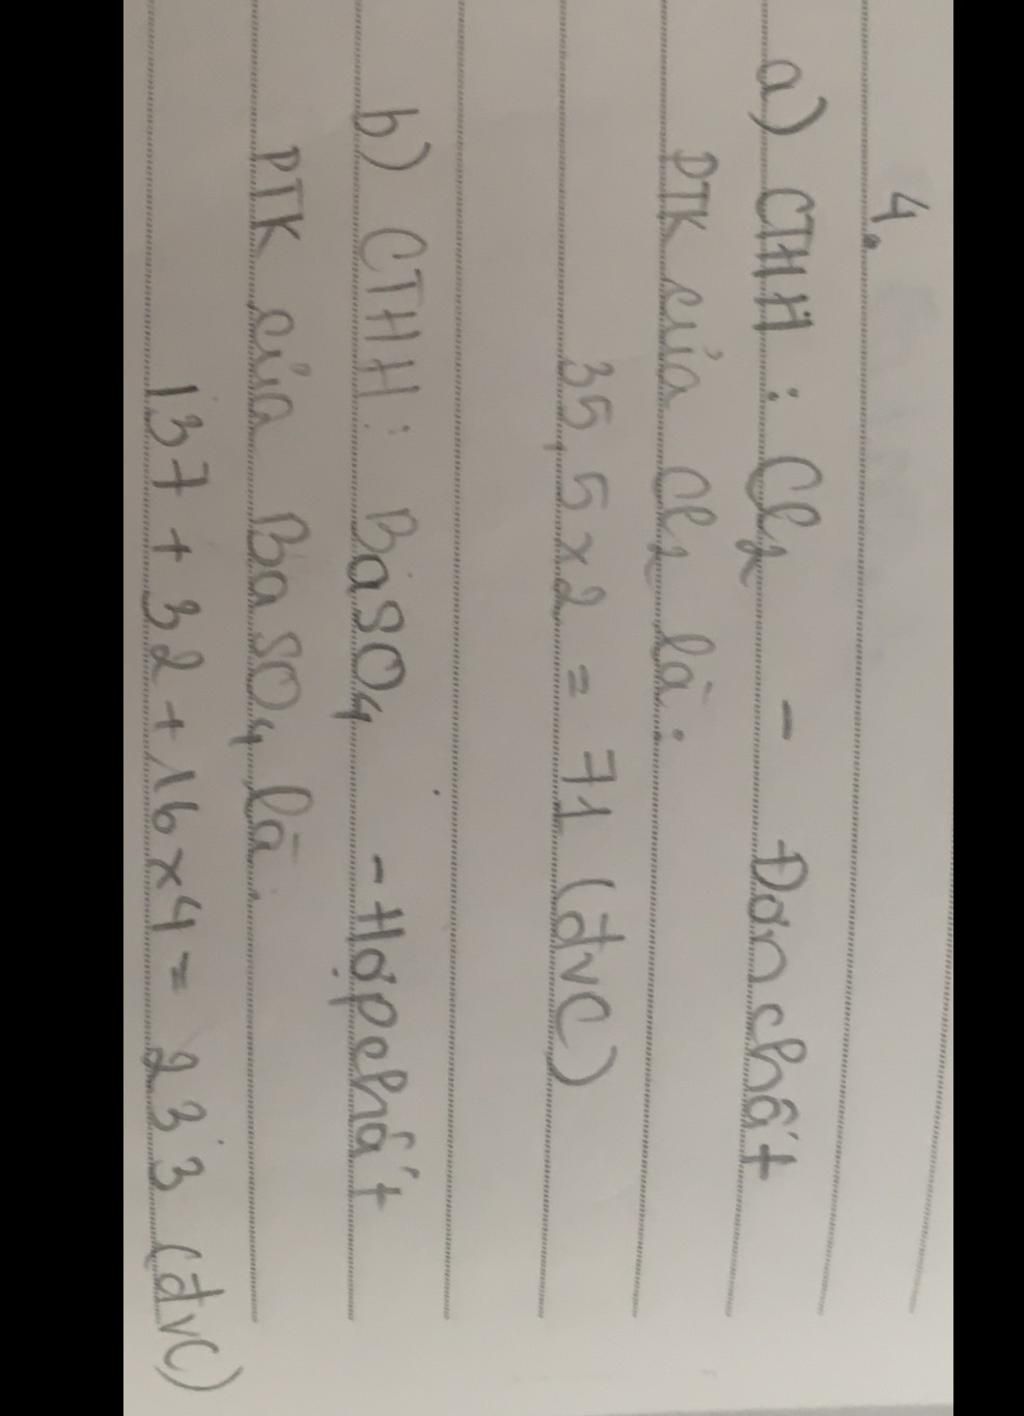 4.
a) CTHH : Cl₂ - Đơn chất
PTK của Cl₂ là :
35,5 x 2 = 71 (đvC)
b) CTHH : BaSO₄ - Hợp chất
PTK của BaSO₄ là.
137 + 32 + 16 x 4 = 233 (đvC)